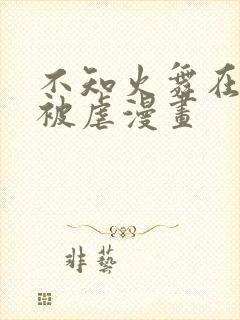 不知火舞在
被虐漫畫
非藝